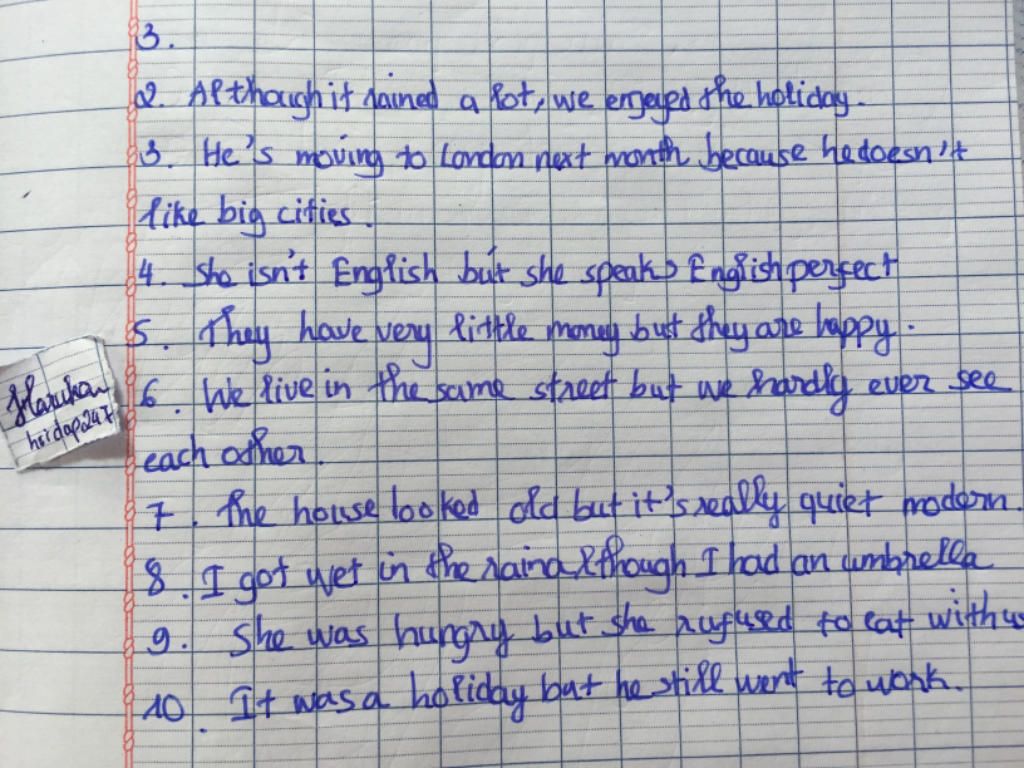 3.
2. Although it rained a lot, we engeyed the holiday.
3. He's moving to London next month because he doesn't
like big cities.
4. She isn't English but she speaks English perfect
5. They have very little money but they are happy.
6. We live in the same street but we hardly ever see
each other.
7. The house looked old but it's really quiet modern.
8. I got wet in the rain although I had an umbrella
9. She was hungry but she rufused to eat with us
10. It was a holiday but he still went to work.
Haruka
hoidap247